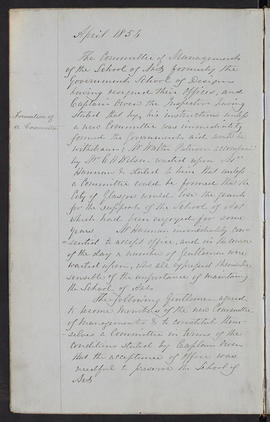 April 1854
The Committee of Management
of the School of Art formerly the
Government School of Design
having resigned their Offices, and
Captain Owen the Inspector having
stated that by his instructions unless
a new Committee was immediately
formed the Government aid would be
withdrawn; Mr Walter Paterson accompanied
by Mr C H Wilson waited upon Mr
Hannan & stated to him that unless
a Committee could be formed that the
City of Glasgow would lose the grants
for the support of the School of Art
which had been enjoyed for some
years Mr Hannan immediately con
sented to accept office, and in the course
of the day a number of Gentlemen were
waited upon, who all expressed themselves
sensible of the importance of maintaining
the School of Art.
The following Gentlemen agreed
to become members of the new Committee
of Management & to constitute them-
selves a Committee in terms of the
conditions stated by Captain Owen
that the acceptance of Office was
needful to preserve the School of
Art
Formation of
a Committee